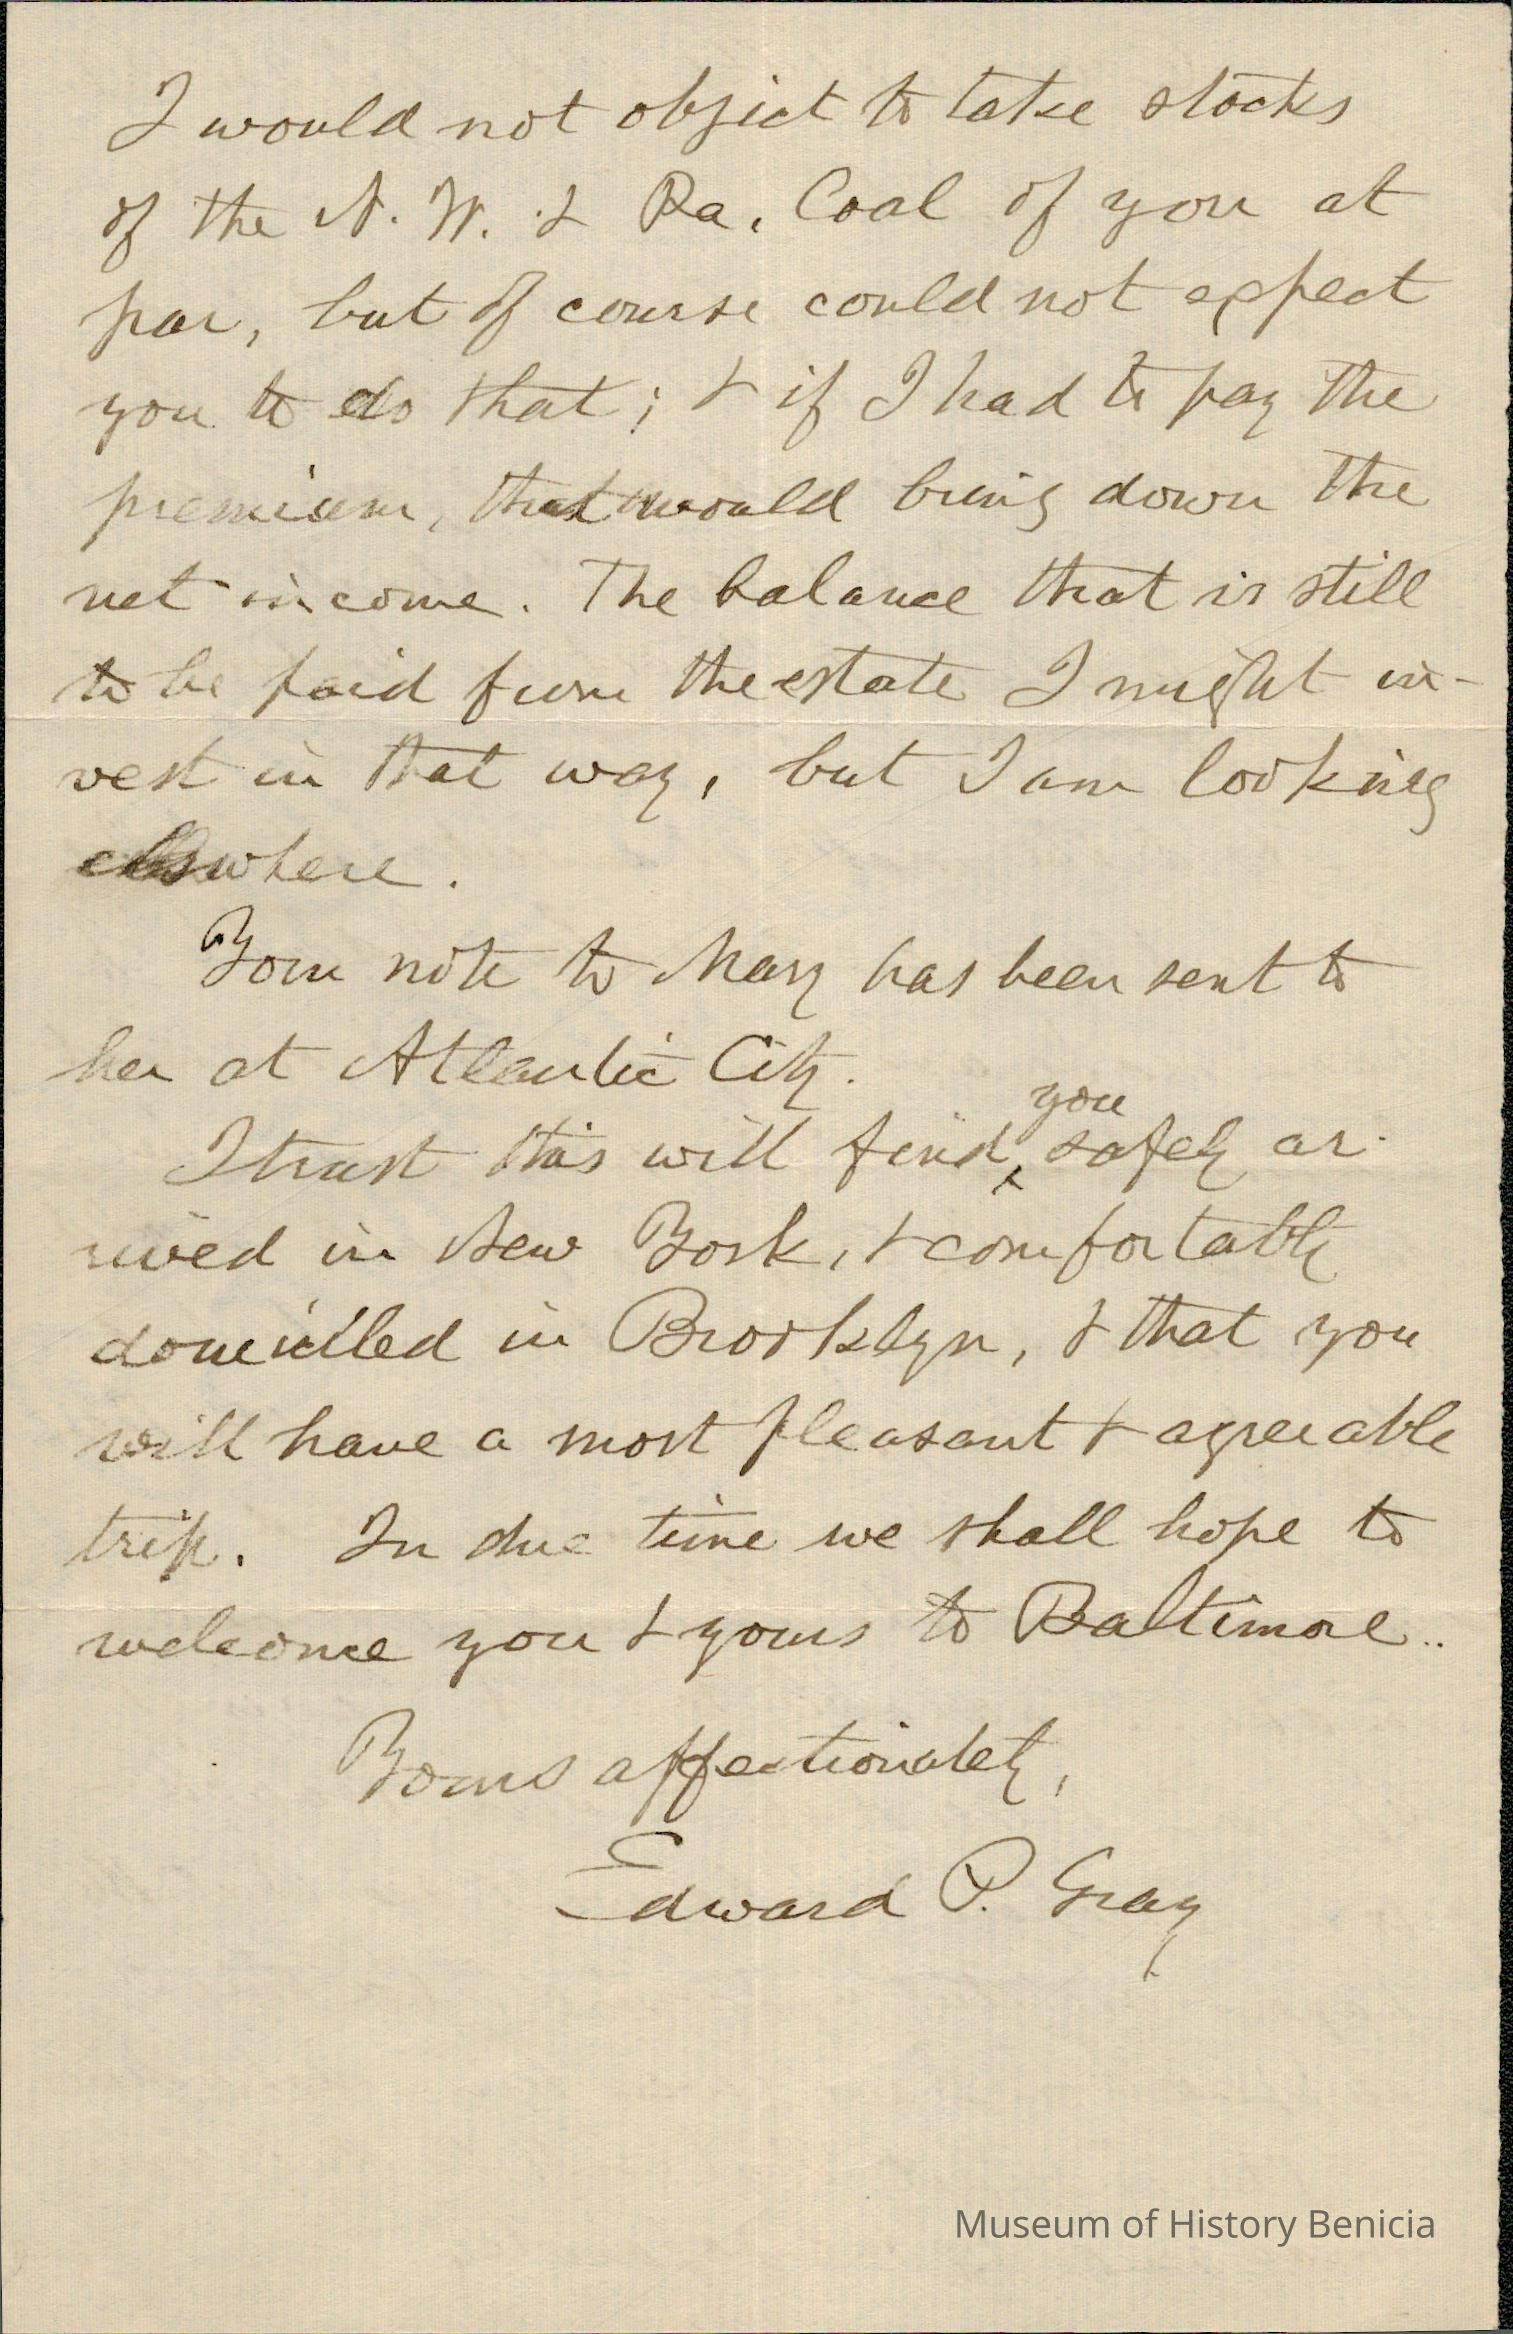 I would not object to take stocks
of the N. W. & Pa. Coal of you at
par, but of course could not expect
you to do that; & if I had to pay the
premium, that would bring down the
net income. The balance that is still
to be paid from the estate I might in-
vest in that way, but I am looking
elswhere.
Your note to Mary has been sent to
her at Atlantic City.
you
I trust this will find safely ar-
rived in New York, & comfortably
domiciled in Brooklyn, & that you
will have a most pleasant & agreeable
trip. In due time we shall hope to
welcome you & yours to Baltimore..
Yours affectionately,
Edward P. Gray
Museum of History Benicia